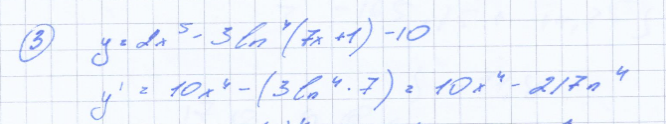 ③ y = 2x⁵ - 3 ln⁴(7x + 1) - 10
y' = 10x⁴ - (3 ln⁴ · 7) = 10x⁴ - 21 ln⁴